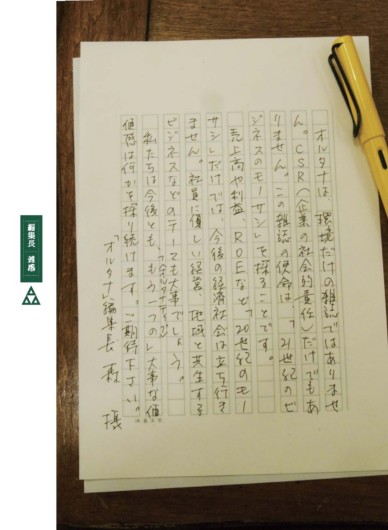 オルタナは、環境だけの雑誌ではありませ
ん。CSR（企業の社会的責任）だけでもあ
りません。この雑誌の使命は、「21世紀のビ
ジネスのモノサシ」を探ることです。
売上高や利益、ROEなど「20世紀のモノ
サシ」だけでは、今後の経済社会は立ち行き
ません。社員に優しい経営、地域と共生する
ビジネスなどのテーマも大事でしょう。
私たちは今後とも、もう一つの(オルタナティブ)大事な価
値感は何かを探り続けます。ご期待下さい。
「オルタナ」編集長 森 摂
編集長 雑感